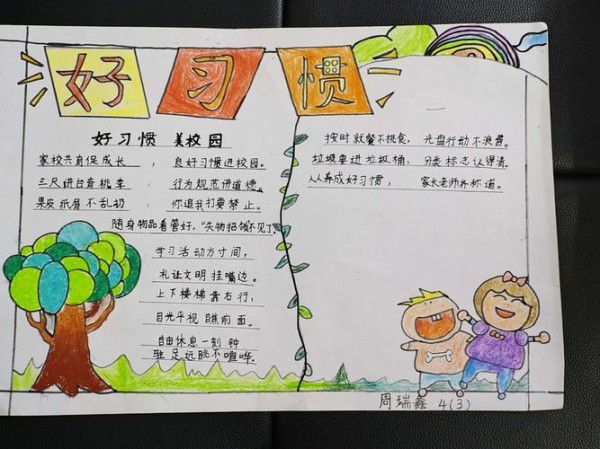 好习惯
好习惯 美校园
家校共育促成长，良好习惯进校园。
三尺讲台育桃李，行为规范讲道德。
果皮纸屑不乱扔，你追我打要禁止。
随身物品看管好，"失物招领"不见了。
学习活动方寸间，
礼让文明挂嘴边。
上下楼梯靠右行，
目光平视瞧前面。
自由休息一刻钟
驻足远眺不喧哗。
按时就餐不挑食，光盘行动不浪费。
垃圾要进垃圾桶，分类标志认得清。
人人养成好习惯，家长老师齐称道。
周瑞鑫 4(3)